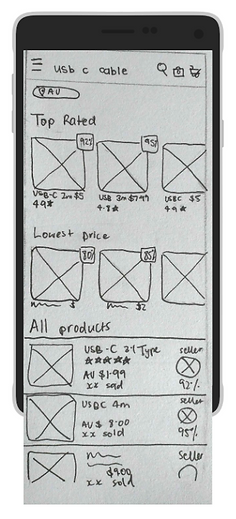 usb c cable
AU
Top Rated
92% 95%
USB-C 2m $5 USB 3m $7.99 USBC $5
4.9★ 4.8★ 4.9★
Lowest price
80% 85%
$ $2
All products
USB-C 2.1 Type seller
★★★★★
AU $1.99
xx sold 92%
USBC 4m seller
AU $ 8.00
xx sold 95%
Seller
$9.00
xx sold